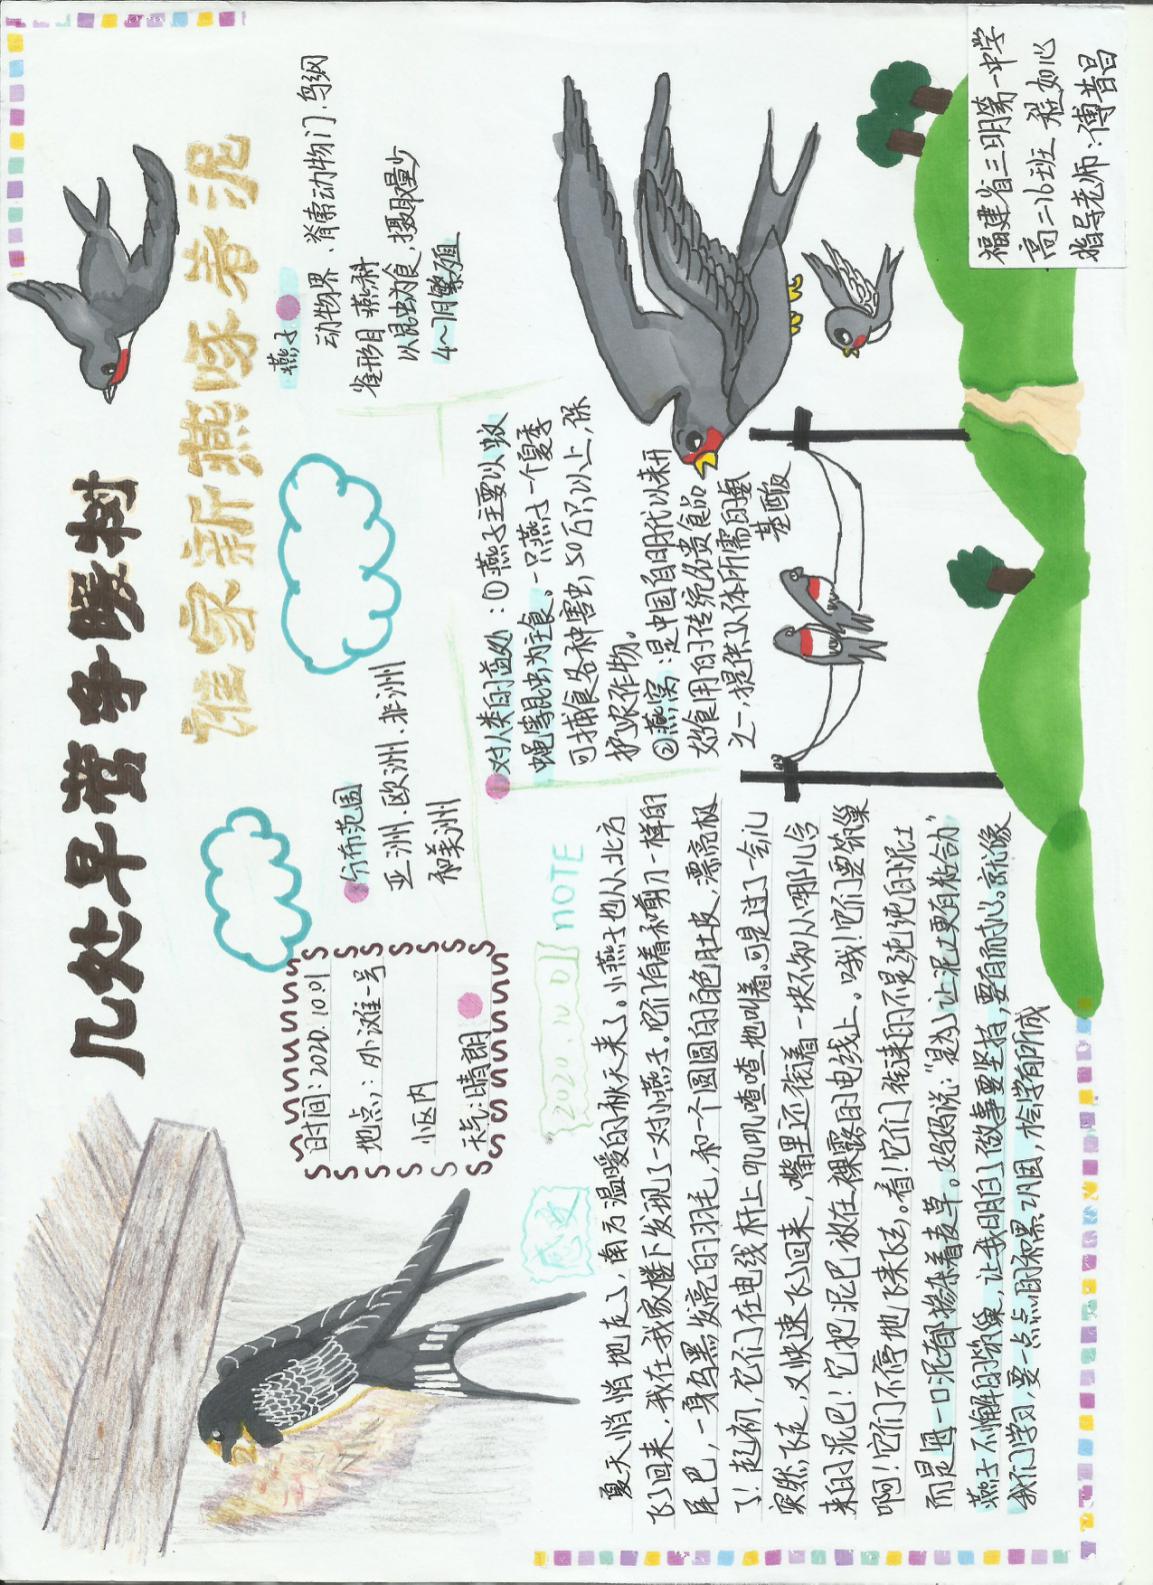 几处早莺争暖树
谁家新燕啄春泥
时间：2020.10.01
地点：外滩一号
小区内
天气：晴朗
分布范围
亚洲.欧洲.非洲
和美洲
燕子
动物界、脊索动物门.鸟纲
雀形目 燕科
以昆虫为食,摄取量少
4~7月繁殖
对人类的益处：①燕子主要以蚊
蝇等昆虫为主食。一只燕子一个夏季
可捕食各种害虫,50万只以上,保
护农作物。
②燕窝：是中国自明代以来开
始食用的传统名贵食品
之一,提供人体所需的氨
基酸
感文
2020.10.01 NOTE
夏天悄悄地走了,南方温暖的秋天来了。小燕子也从北方
飞了回来,我在我家楼下发现了一对燕子。它们有着和剪刀一样的
尾巴,一身乌黑发亮的羽毛,和一个圆圆的白色肚皮,漂亮极
了！起初,它们在电线杆上叽叽喳喳地叫着。可是过了一会儿
突然飞走,又快速飞了回来,嘴里还衔着一块不知从哪儿含
来的泥巴！它把泥巴放在裸露的电线上。哦！它们要筑巢
啊！它们不停地飞来飞去。看！它们衔来的不是纯纯的泥土
而是每一口泥都掺杂着麦草。妈妈说：“是为了让泥土更有粘合力”
燕子不懈的筑巢,让我明白了做事要坚持,要有耐心。就像
我们学习,要一点点的积累巩固,才会学有所成
福建省三明第一中学
高二16班 程如心
指导老师：傅昔昌